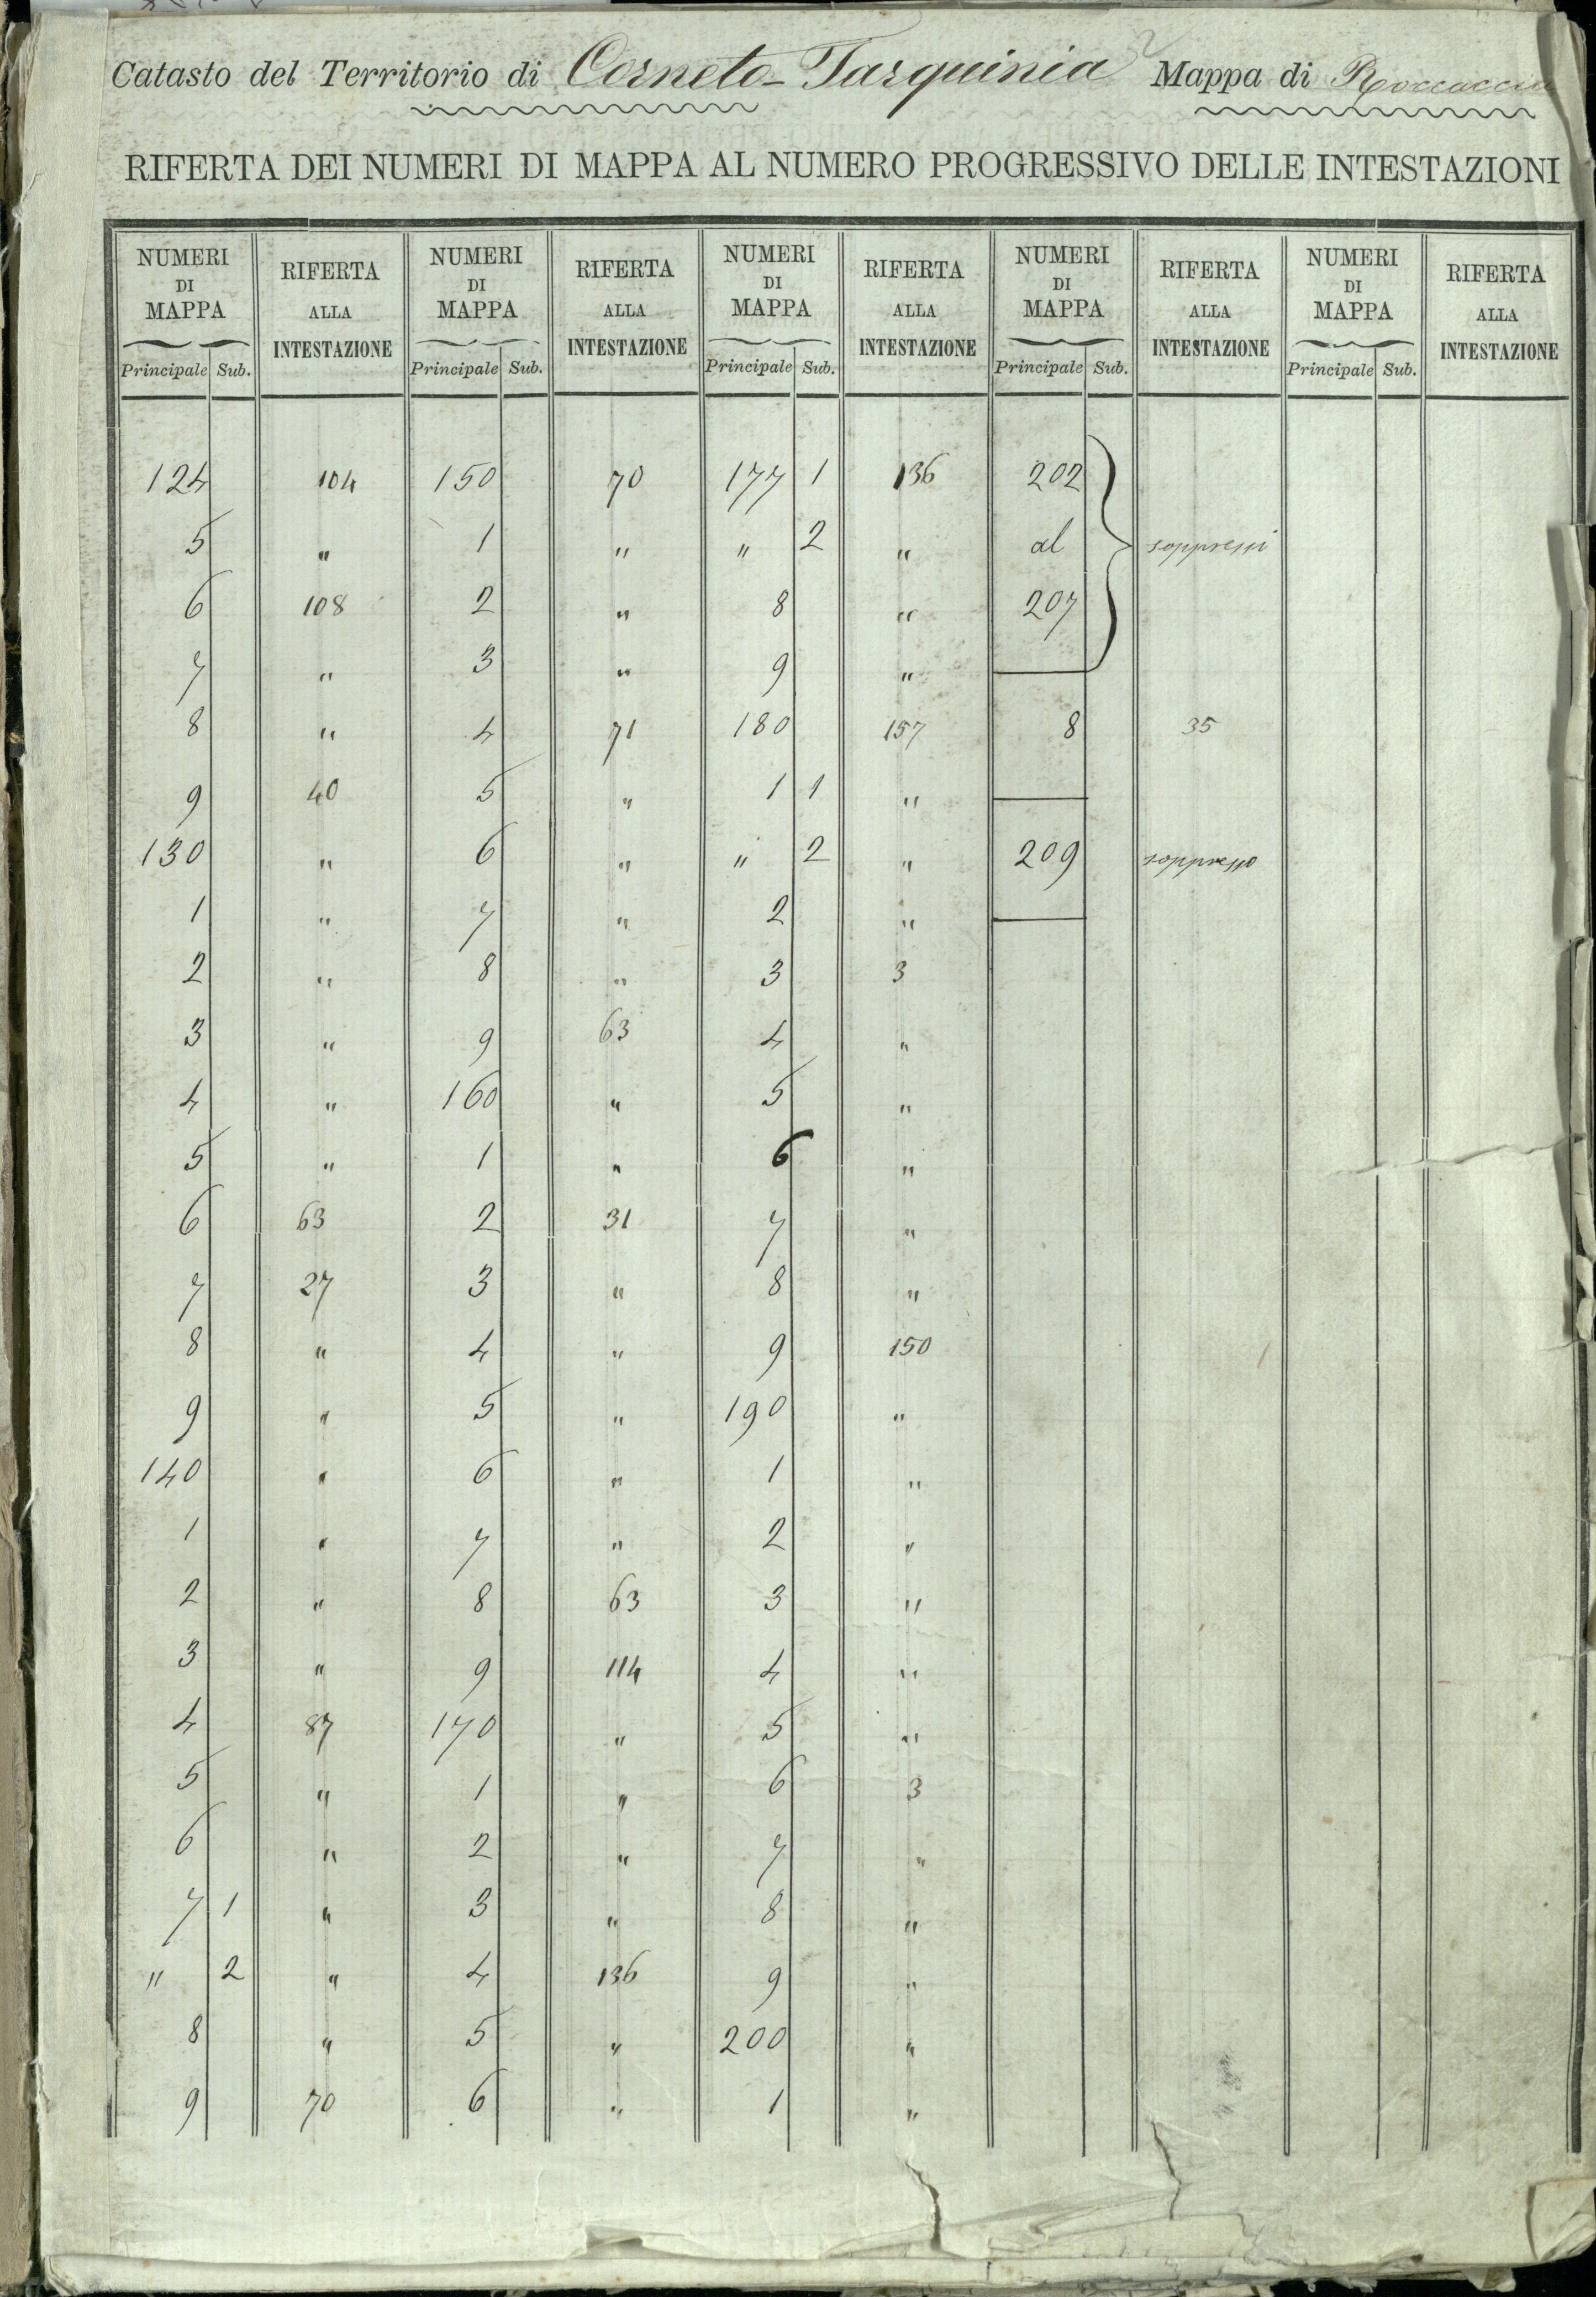 Catasto del Territorio di Corneto-Tarquinia Mappa di Roccaccia
RIFERTA DEI NUMERI DI MAPPA AL NUMERO PROGRESSIVO DELLE INTESTAZIONI
NUMERI DI MAPPA RIFERTA ALLA INTESTAZIONE NUMERI DI MAPPA RIFERTA ALLA INTESTAZIONE NUMERI DI MAPPA RIFERTA ALLA INTESTAZIONE NUMERI DI MAPPA RIFERTA ALLA INTESTAZIONE NUMERI DI MAPPA RIFERTA ALLA INTESTAZIONE
Principale Sub. Principale Sub. Principale Sub. Principale Sub. Principale Sub.
124 104 150 70 177 1 136 202
5 " 1 " " 2 " al soppressi
6 108 2 " 8 " 207
7 " 3 " 9 "
8 " 4 71 180 157 8 35
9 40 5 " 1 1 "
130 " 6 " " 2 " 209 soppresso
1 " 7 " 2 "
2 " 8 " 3 3
3 " 9 63 4 "
4 " 160 " 5 "
5 " 1 " 6 "
6 63 2 31 7 "
7 27 3 " 8 "
8 " 4 " 9 150
9 " 5 " 190 "
140 " 6 " 1 "
1 " 7 " 2 "
2 " 8 63 3 "
3 " 9 114 4 "
4 87 170 " 5 "
5 " 1 " 6 3
6 " 2 " 7 "
7 1 " 3 " 8 "
" 2 " 4 136 9 "
8 " 5 " 200 "
9 70 6 " 1 "